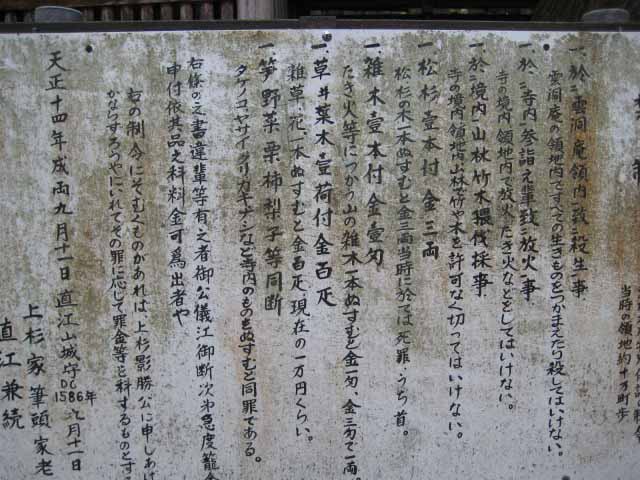 当時の領地約十万町歩
一、於二雲洞庵領内一致二殺生事
雲洞庵の領地内ですべての生きものをつかまえたり殺してはいけない。
一、於二寺内一参詣之輩致二放火事
寺の境内、領地内で放火、たき火などをしてはいけない。
一、於二境内一山林竹木猥伐採事
寺の境内領地内山林、竹や木を許可なく切ってはいけない。
一、松杉壹本付 金三両
松杉の木一本ぬすむと金三両当時に於ては死罪、うち首。
一、雑木壹本付金壹匁
たき火等につかう山の雑木一本ぬすむと金一匁、金三匁で一両。
一、草井葉木壹荷付金百疋
雑草、花、一本ぬすむと金百疋現在の一万円くらい。
一、笋野菜栗柿梨子等同断
タケノコヤサイクリカキナシなど寺内のものをぬすむと同罪である。
右條の文書違輩等有之者御公儀江御断次第急度籠舎
申付依其品之科料金可為出者や
右の制令にそむくものがあれば、上杉影勝公に申しあげ
かならずろうやにいれてその罪に応じて罪金等を科するものとする
天正十四年戌丙九月十一日 直江山城守
DC1586年 九月十一日
上杉家筆頭家老
直江兼続